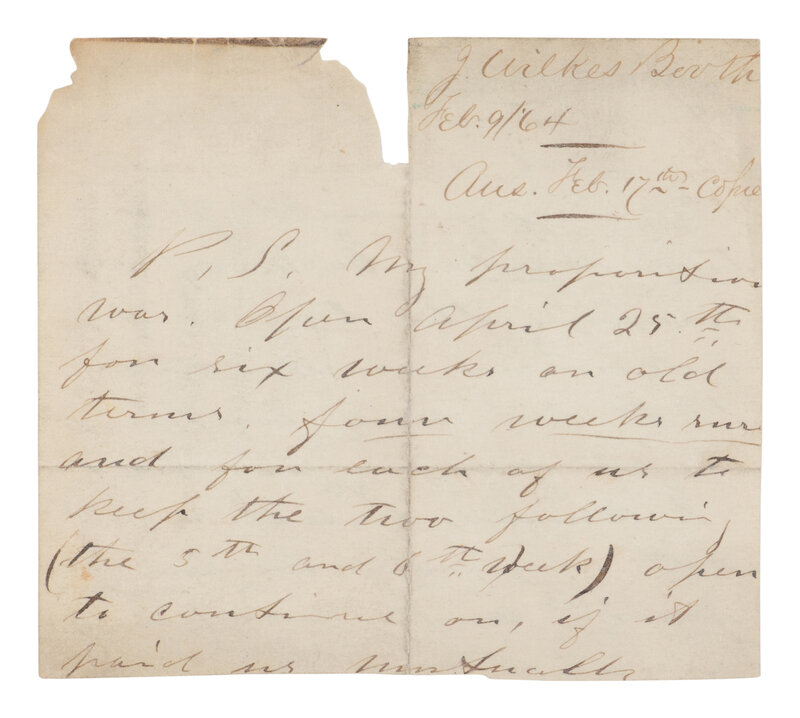 J. Wilkes Booth
Feb. 9/64
Ans. Feb. 17th Copie
P. S. My proposition
was. Open April 25.th
for six weeks on old
terms. four weeks sure
and for each of us to
keep the two followin
(the 5th and 6th week) open
to continue on, if it
paid us mutually